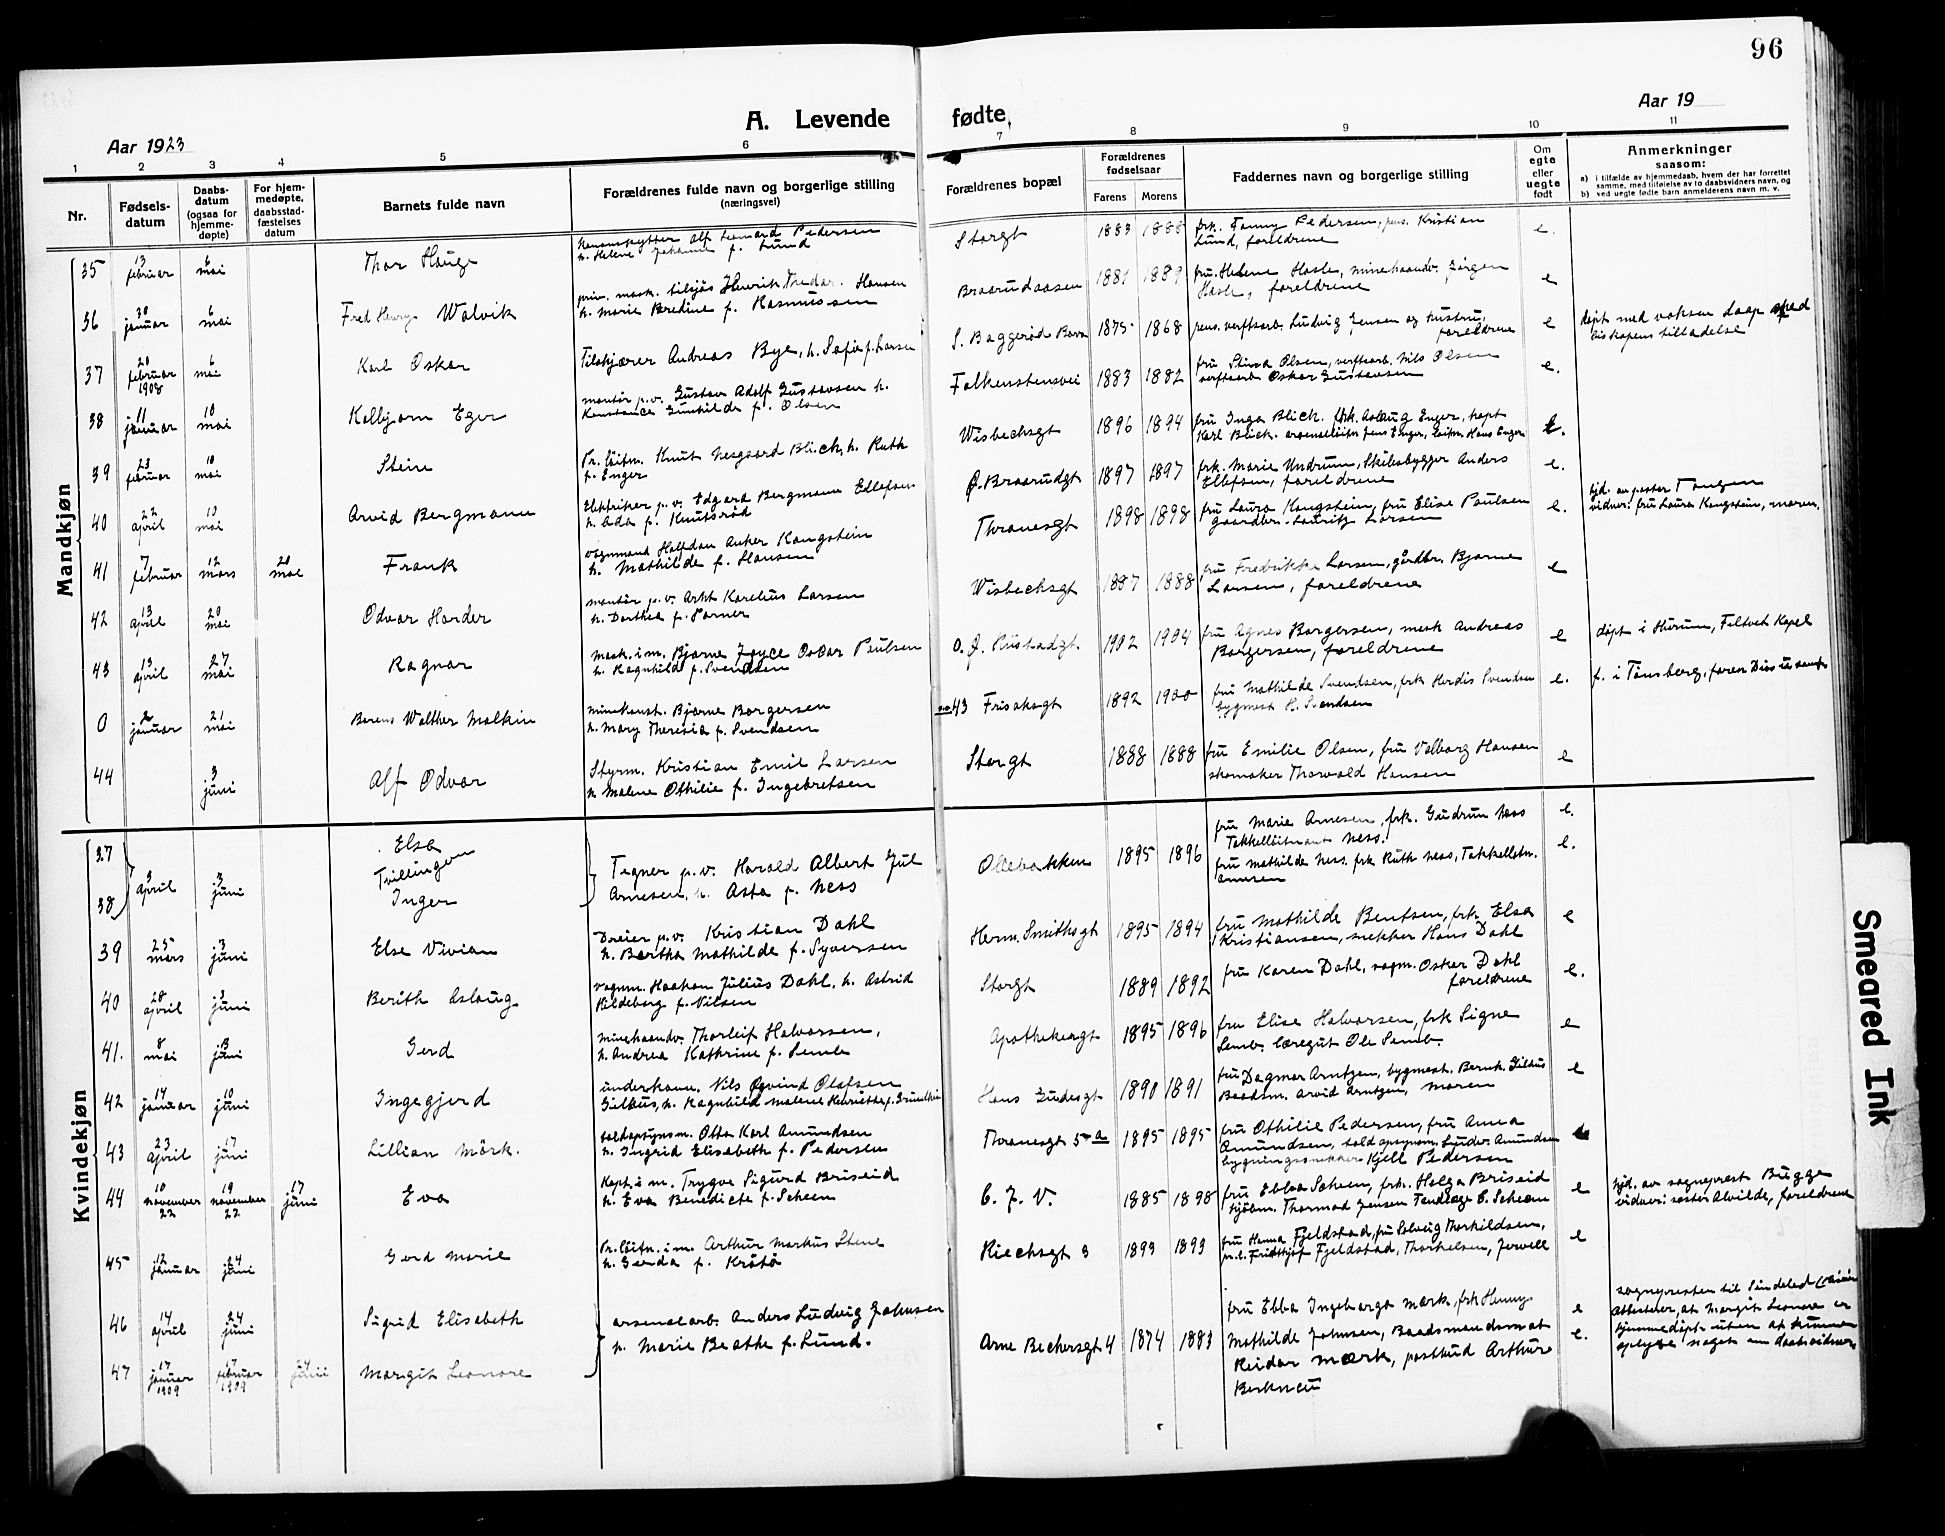 96
A. Levende fødte,
Aar 1923
Aar 19
1 2 3 4 5 6 7 8 9 10 11
Nr.
Fødsels-
datum
Daabs-
datum
(ogsaa for
hjemme-
døpte)
For hjem-
medøpte,
daabsstad-
fæstelses
datum
Barnets fulde navn
Forældrenes fulde navn og borgerlige stilling
(næringsvei)
Forældrenes bopæl
Forældrenes
fødselsaar
Farens Morens
Faddernes navn og borgerlige stilling
Om
egte
eller
uegte
født
Anmerkninger
saasom:
a) i tilfælde av hjemmedaab, hvem der har forrettet
samme, med tilføielse av to daabsvidners navn, og
b) ved uegte fødte barn anmelderens navn m. v.
Mandkjøn
35 13 februar 6 mai Thor Hauge
Kanonskytter Alf Leonard Pedersen
h. Helene Johanne f. Lund
Storgt 1883 1888
frk. Fanny Pedersen, pens. Kristian
Lund, foreldrene
e.
36 30 januar 6 mai Fred Henry Walvik
priv. mask. Henrik Hansen
h. Marie Bredine f. Rasmussen
Braarudaasen 1881 1889
fru Helene Hasle, minehaandv. Jørgen
Hasle, foreldrene
e
37 20 februar 1908 6 mai Karl Oskar
Tilskjærer Andreas Bye, h. Sofie f. Larsen
S. Baggerød Borre 1875 1868
pens. verftsarb. Ludvig Jensen og hustru,
foreldrene
e
døpt med voksen daap med
biskopens tilladelse
38 11 januar 10 mai Kolbjørn Eger
montør p.v. Gustav Adolf Gustavsen h.
Konstance Gunhilde f. Olsen
Falkenstensvei 1883 1882
fru Olsen, verftsarb. Nils Olsen
verftsarb Oskar Gustavsen
e.
39 23 februar 10 mai Stein
Pr. løitn. Knut Nesgaard Blich, h. Ruth
f. Enger
Wisbechsgt 1896 1894
fru Inga Blich. frk. Aslaug Enger, kapt
Karl Blich. Enger, løitn. Hans Enger
e.
40 22 april 10 mai Arvid Bergmann
Elektriker p.v. Edgard Bergmann Edlefsen
h. Ada f. Knutsrød
Ø. Braarudgt 1897 1897
frk. Marie Undrum, Skibsbygger Anders
Ellefsen, foreldrene
e.
41 7 februar 12 mars 20 mai Frank
vognmand Halfdan Anker Kongstein
h. Mathilde f. Hansen
Thranesgt 1898 1898
fru Laura Kongstein, fru Elise Paulsen
gaardbr. Lauritz Larsen
e.
hjd. av pastor Tangen
vidner: fru Laura Kongstein, moren.
42 13 april 20 mai Odvar Harder
montør p.v. Arht Karelius Larsen
h. Dorthea f. Parner
Wisbechsgt 1887 1888
fru Fredrikke Larsen, gårdbr. Bjarne
Larsen, foreldrene
e
43 13 april 27 mai Ragnar
Mask. i m. Bjarne Joyce Oscar Paulsen
h. Ragnhild f. Svendsen
O. Ø. Prestadgt. 1902 1904
fru Agnes Borgersen, mask Andreas
Borgersen, foreldrene
e
døpt i Hurum, Filtvet Kapel
0 2 januar 21 mai Berens Walther Malkin
minekonst. Bjarne Borgersen
h. Mary Theresia f. Svendsen
no 43 Frisaksgt 1892 1900
fru Mathilde Svendsen, frk Herdis Svendsen
bygmest. P. Svendsen
e.
f. i Tønsberg, faren Dissident
44 3 juni Alf Odvar
Styrm. Kristian Emil Larsen
h. Malene Othilie f. Ingebretsen
Storgt 1888 1888
fru Emilie Olsen, fru Valborg Hansen
skomaker Thorvald Hansen
e
Kvindekjøn
37 Elsa
Tvillinger
38 3 april 3 juni Inger
Tegner p.v. Harald Albert Jul
Arnesen, h. Asta f. Ness
Ollebakken 1895 1896
fru Marie Arnesen, frk. Gudrun Ness
Takkelløitnant Ness.
e.
fru Mathilde Ness. frk Ruth Ness, Takkelløtn.
Arnesen
e.
39 25 mars 3 juni Else Vivian
Dreier p.v. Kristian Dahl
h. Bertha Mathilde f. Syversen
Herm. Smithsgt 1895 1894
fru Mathilde Bentsen, frk Elsa
Kristiansen, snekker Hans Dahl
e
40 28 april 3 juni Berith Aslaug
vognm. Haakon Julius Dahl, h. Astrid
Hildeborg f. Nilsen
Storgt 1889 1892
fru Karen Dahl, vogm. Oskar Dahl
foreldrene
e.
41. 8 mai 3 juni Gerd
minehaandv. Thorleif Halvorsen,
h. Andrea Kathrine f. Semb
Apothekergt 1895 1896
fru Elise Halvorsen, frk Signe
Semb. læregut Ole Semb.
e
42 14 januar 10 juni Ingegjerd
underkan. Nils Øyvind Olafsen
Gilhus, h. Ragnhild Malene Henriette f. Grundtvig
Hans Gudesgt 1890 1891
fru Dagmar Arntzen, bygmest. Bernh. Gilhus
Baadsm. Arvid Arntzen, moren
e
43 23 april 17 juni Lillian Mørk.
toldopsynsm. Otto Karl Amundsen
h. Ingrid Elisabeth f. Pedersen
Thranesgt 5 a 1895 1895
fru Othilie Pedersen, fru Anna
Amundsen, told opsynsm. Amundsen
bygningssnekker Kjell Pedersen
44 10 november 22 19 november 22 17 juni Eva
Kapt. i m. Trygve Sigurd Briseid
h. Eva Benedicte f. Scheen
C. J. V. 1885 1898
fru Ebba Scheen, frk. Helga Briseid
kjøbm. Thormod Jensen Tandlæge C. Scheen
e
hjd. av sogneprest Bugge
vidner: søster Alvilde, foreldrene
45 12 januar 24 juni Gerd Marie
Pr. løitn. i m. Arthur Markus Stene
h. Gerda f. Kråbø
Riechsgt 3 1893 1893
fru Hanna Fjeldstad, fru Solveig Thorkildsen,
pr.l. Fridthjof Fjeldstad, Thorkelsen, Jervell
e
46 14 april 24 juni Sigrid Elisabeth
47 17 januar 1909 17 februar 1909 24 juni Margit Leonore
arsenalarb. Anders Ludvig Johnsen
h. Marie Beathe f. Lund.
Arne Bechersgt 4 1874 1883
fru Ebba Ingeborga Mørk, frk Hennys
Mathilde Johnsen, Baadsmandsmat
Reidar Mærk, postbud Arthur
e
e.
sognepresten til Søndeled
attesterer, at Margit Leonore er
hjemmedøpt uten at kunne
oplyse noget om daabsvidner.
Smeared Ink